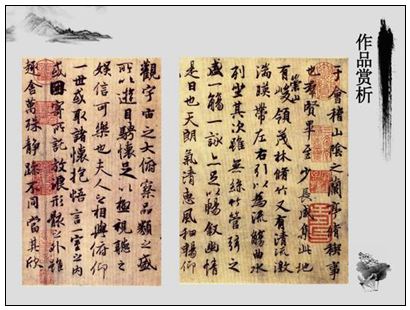 作品赏析
于會稽山陰之蘭亭脩稧事
也羣賢畢至少長咸集此地
有崇山峻領茂林脩竹又有清流激
湍暎帶左右引以為流觴曲水
列坐其次雖無絲竹管弦之
盛一觴一詠亦足以暢叙幽情
是日也天朗氣清惠風和暢仰
觀宇宙之大俯察品類之盛
所以遊目騁懷足以極視聽之
娛信可樂也夫人之相與俯仰
一世或取諸懷抱悟言一室之內
或因寄所託放浪形骸之外雖
趣舍萬殊靜躁不同當其欣